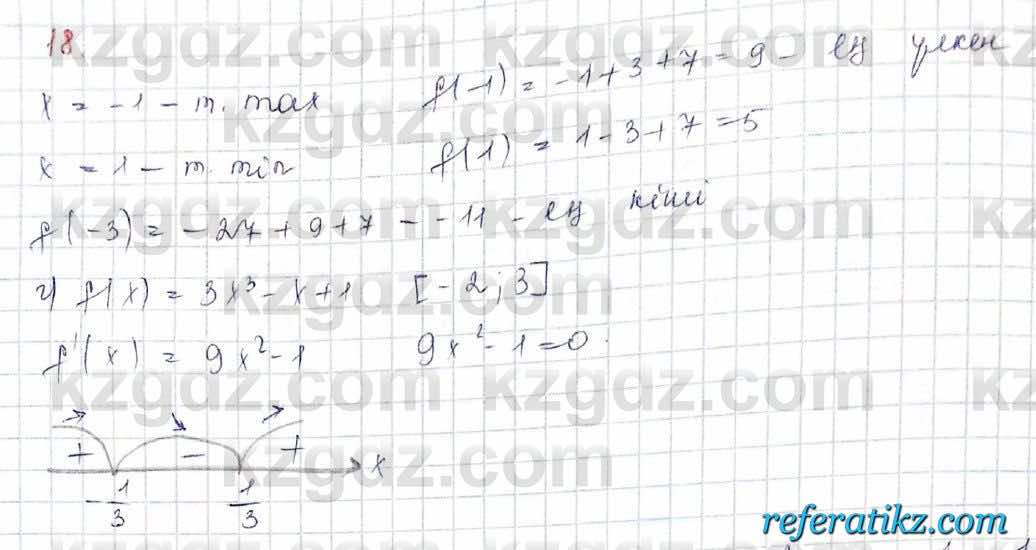 18.
x = -1 - т. max f(-1) = -1+3+7 = 9 - ең үлкен
x = 1 - т. min f(1) = 1-3+7 = 5
f(-3) = -27+9+7 = -11 - ең кіші
г) f(x) = 3x³-x+1 [-2; 3]
f'(x) = 9x²-1 9x²-1=0.
+ - + x
-1/3 1/3
kzgdz.com
referatikz.com